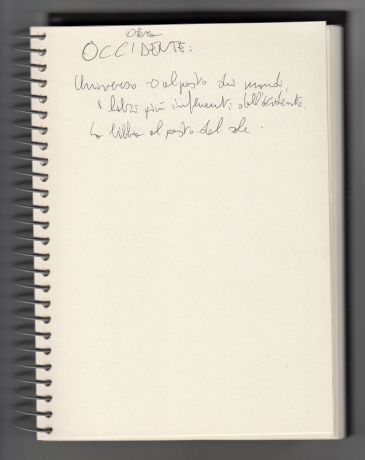 OPERA
OCCIDENTE:
Universo → al posto dei mondi,
i libri più influenti dell'occidente.
La bibbia al posto del sole.